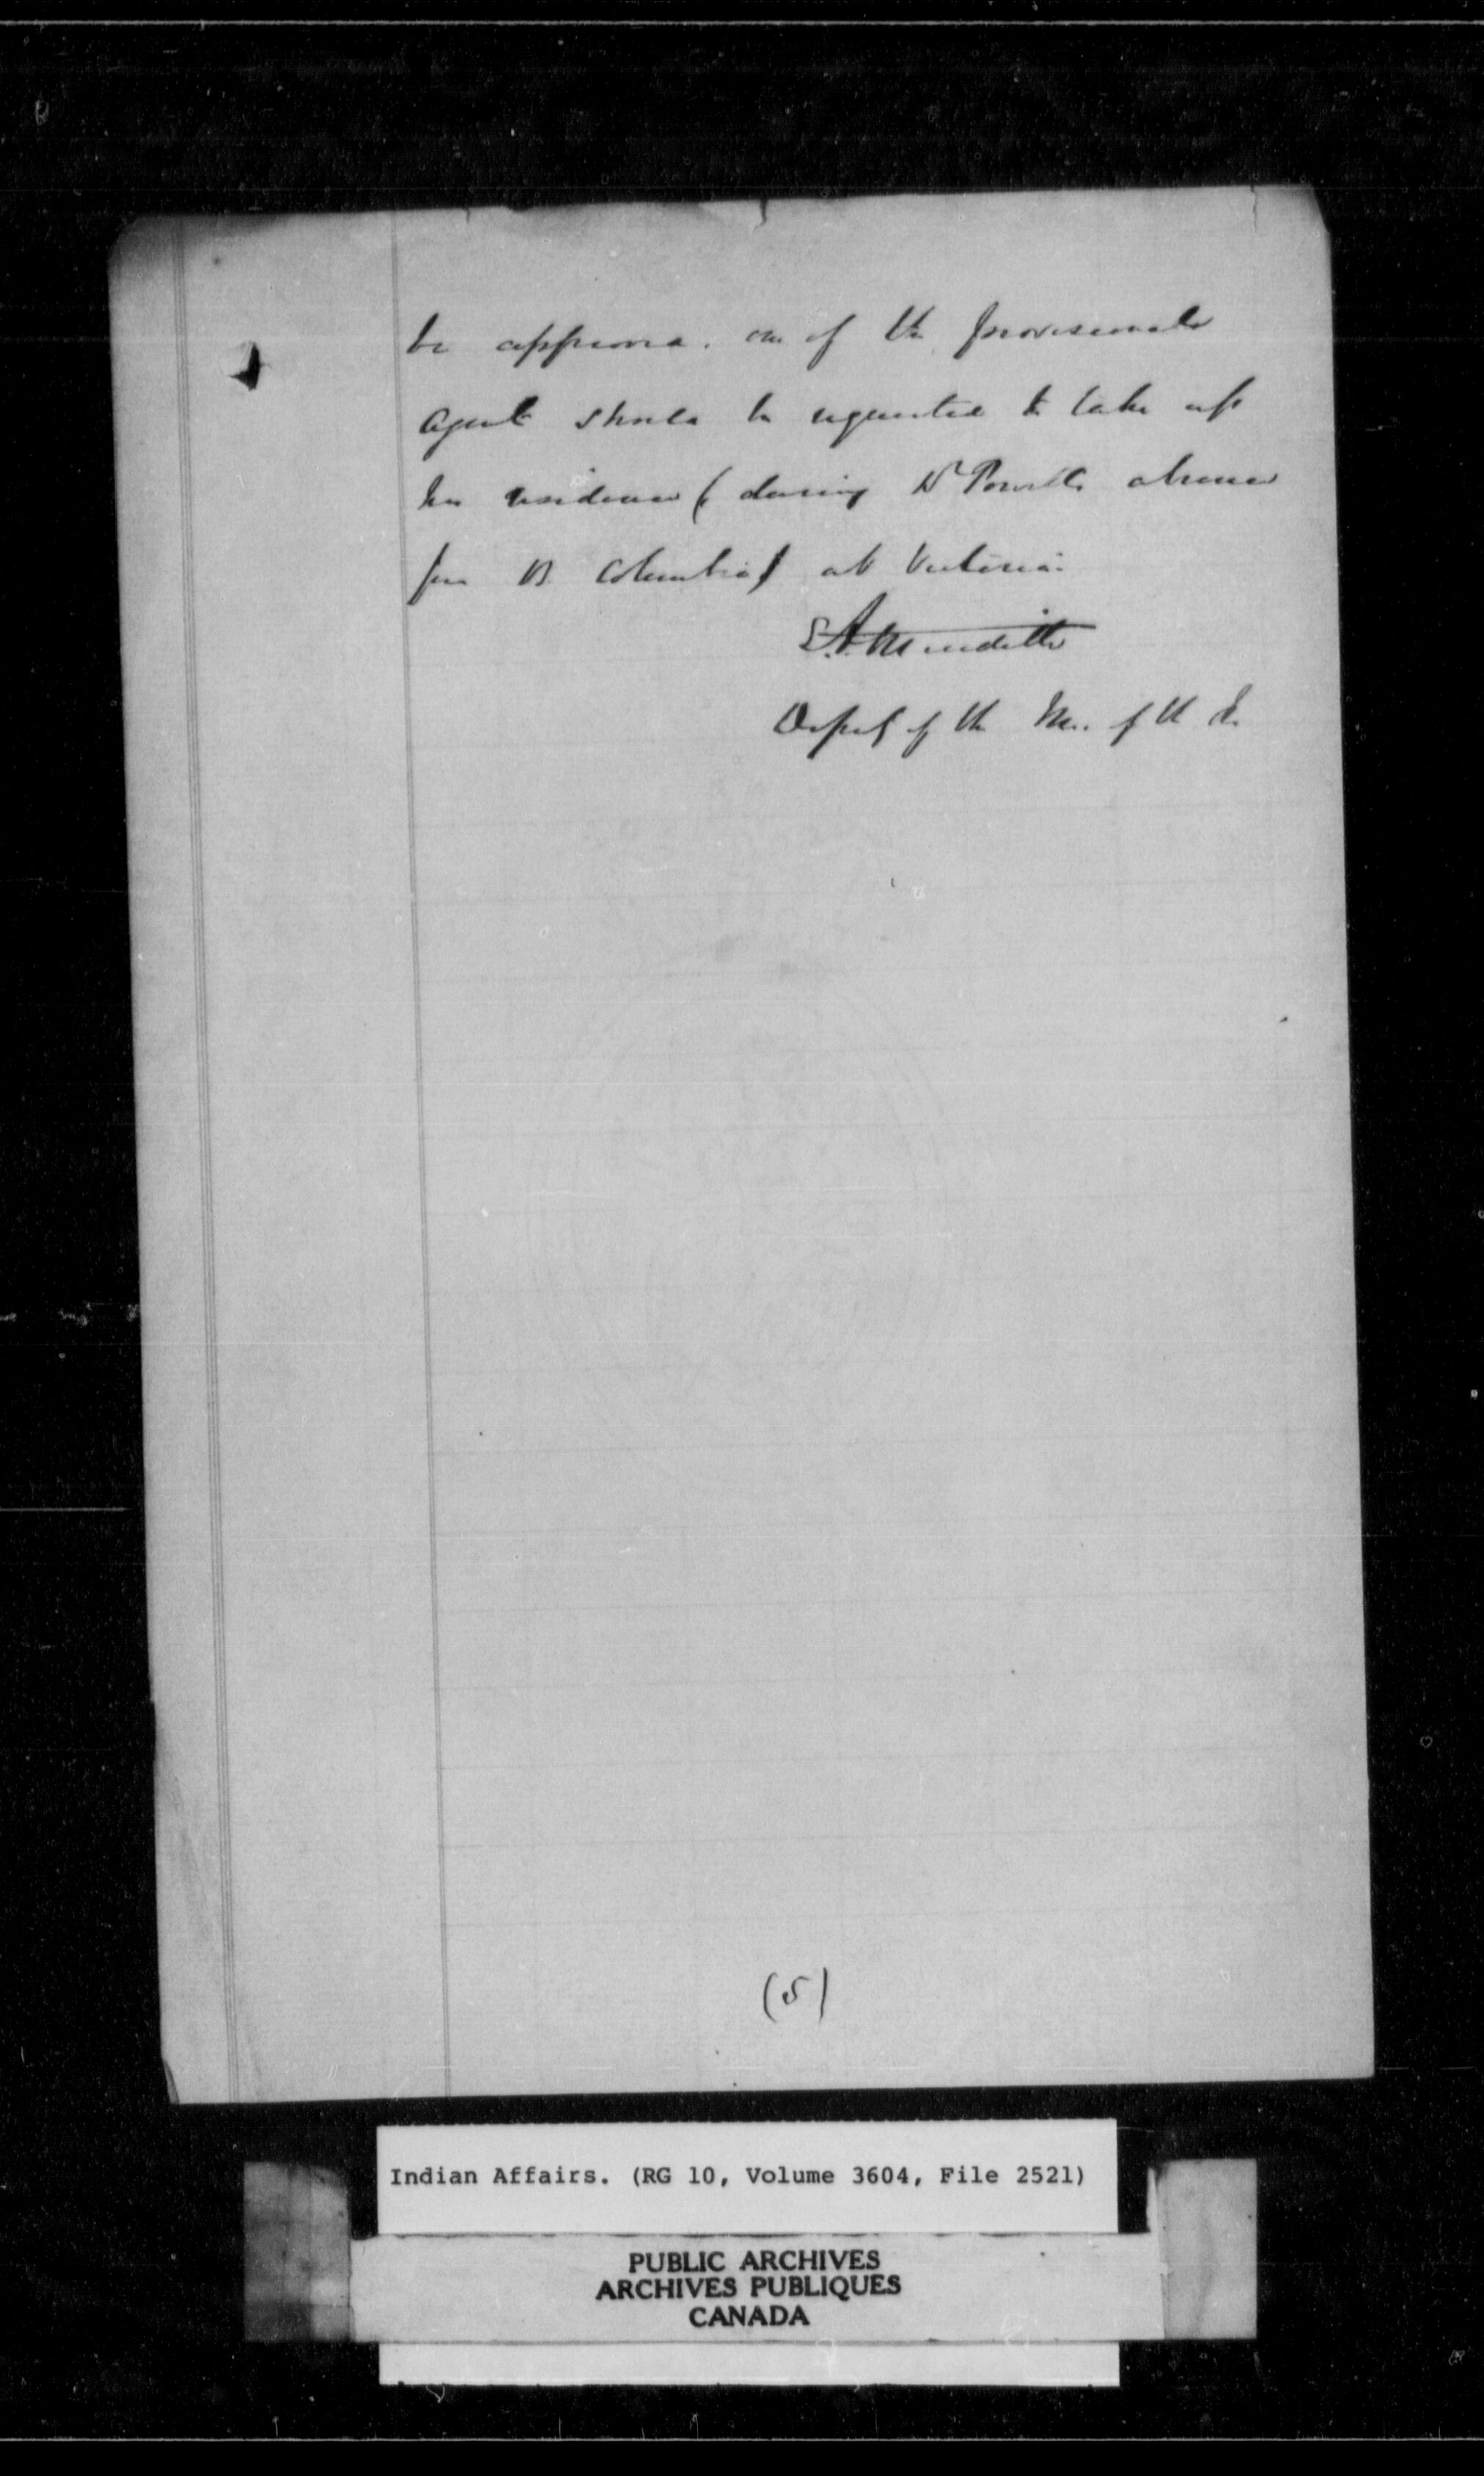 be approved. one of the provisional
Agents should be requested to take up
his residence (during Dr Powell's absence
from B Columbia) at Victoria.
E.A. Meredith
Deputy of the Min. of the In.
(5)
Indian Affairs. (RG 10, Volume 3604, File 2521)
PUBLIC ARCHIVES
ARCHIVES PUBLIQUES
CANADA